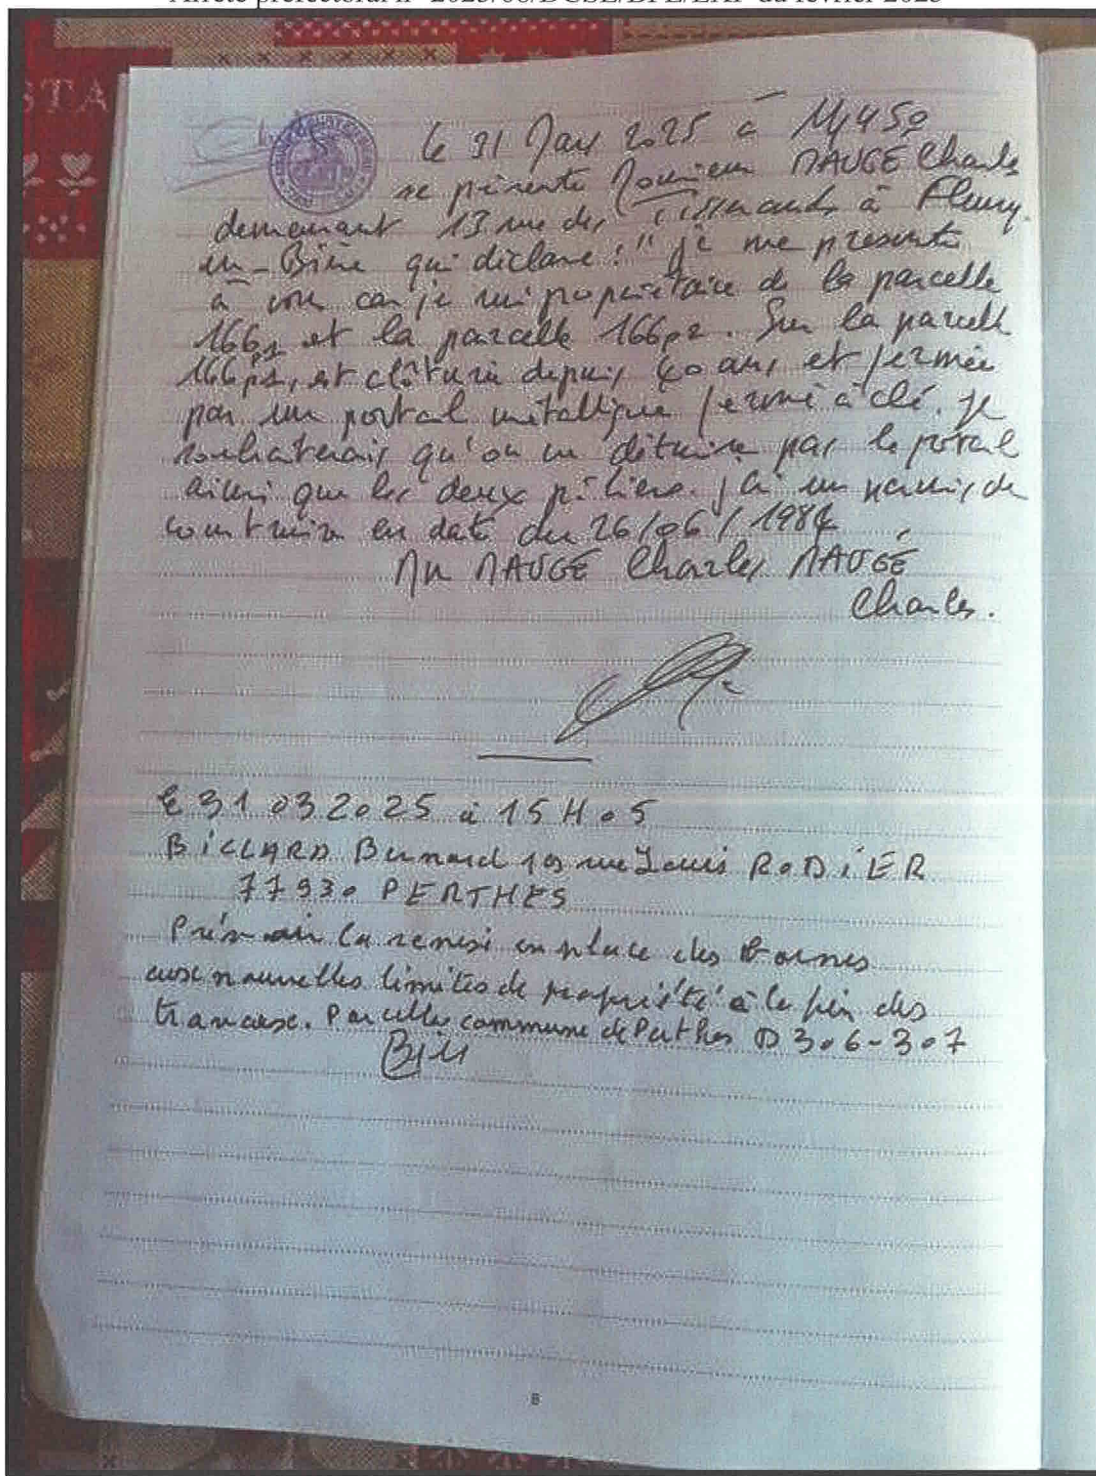 Arrêté préfectoral n° 2025/06/DCSE/BPE/EXP du février 2025
STA
Le 31 Mars 2025 à 14h50
se présente Monsieur MAUGÉ Charles
demeurant 13 rue des à Fleury-
en-Bière qui déclare : "je me présente
à vous car je suis propriétaire de la parcelle
166p1 et la parcelle 166p2. Sur la parcelle
166p1, est clôturé depuis 40 ans et fermée
par un portail métallique fermé à clé. Je
souhaiterais qu'on ne détruise pas le portail
ainsi que les deux piliers. J'ai un permis de
construire en date du 26/06/1984
Mr MAUGÉ Charles MAUGÉ
Charles.
le 31 03 2025 à 15H05
BILLARD Bernard 109 rue Louis RODIER
77930 PERTHES
Prévoir la remise en place des Bornes
aux nouvelles limites de propriété à la fin des
travaux. Parcelles commune de Perthes D 306-307
Bill
8